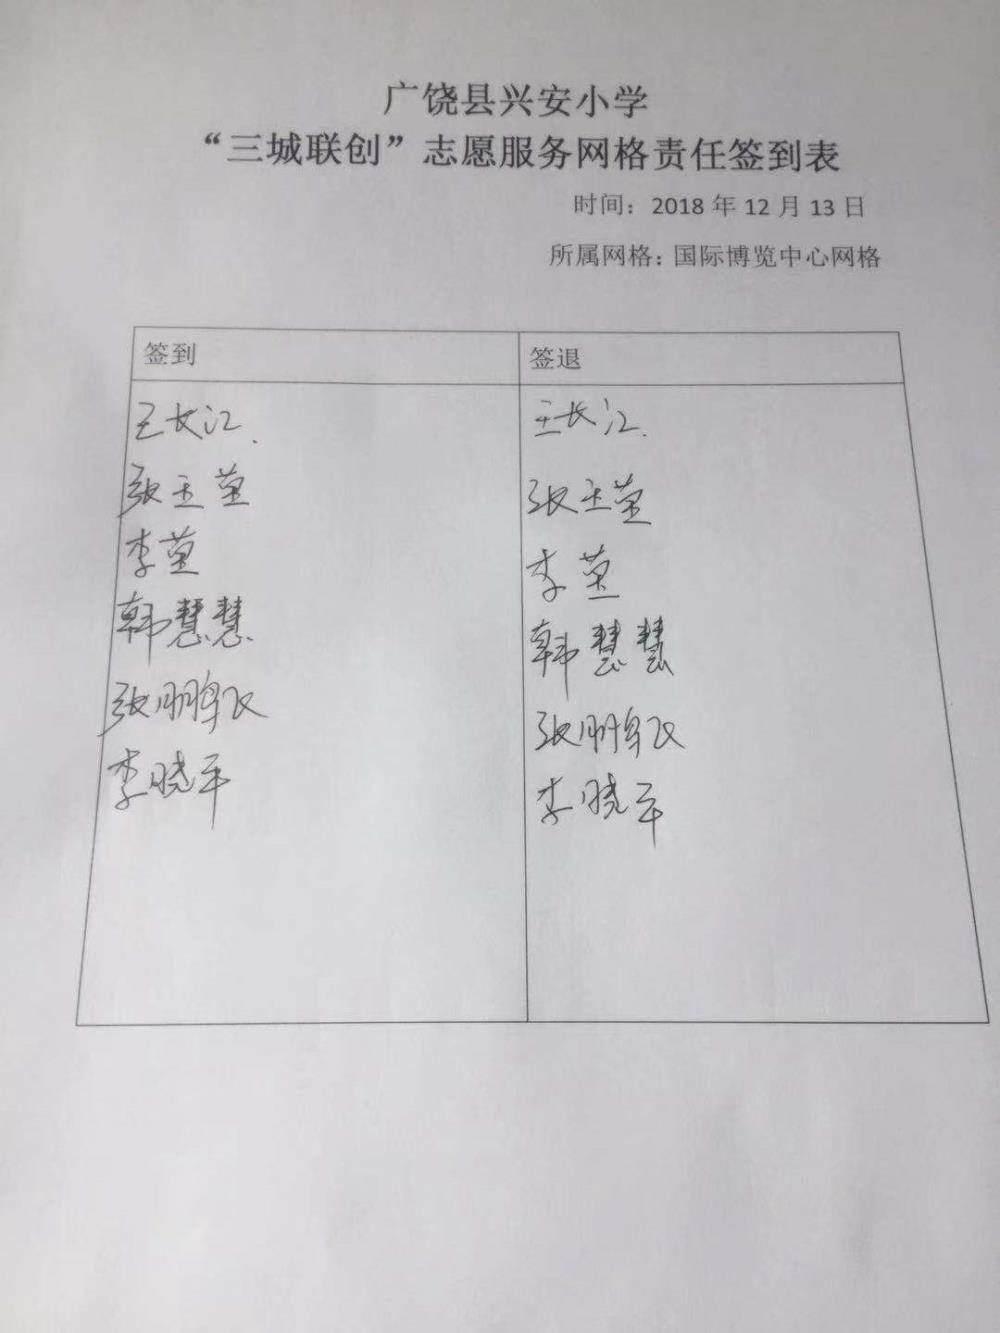 广饶县兴安小学
“三城联创”志愿服务网格责任签到表
时间：2018 年 12 月 13 日
所属网格：国际博览中心网格
签到 签退
王长江. 王长江.
张玉莹 张玉莹
李莹 李莹
韩慧慧 韩慧慧
张鹏飞 张鹏飞
李晓平 李晓平